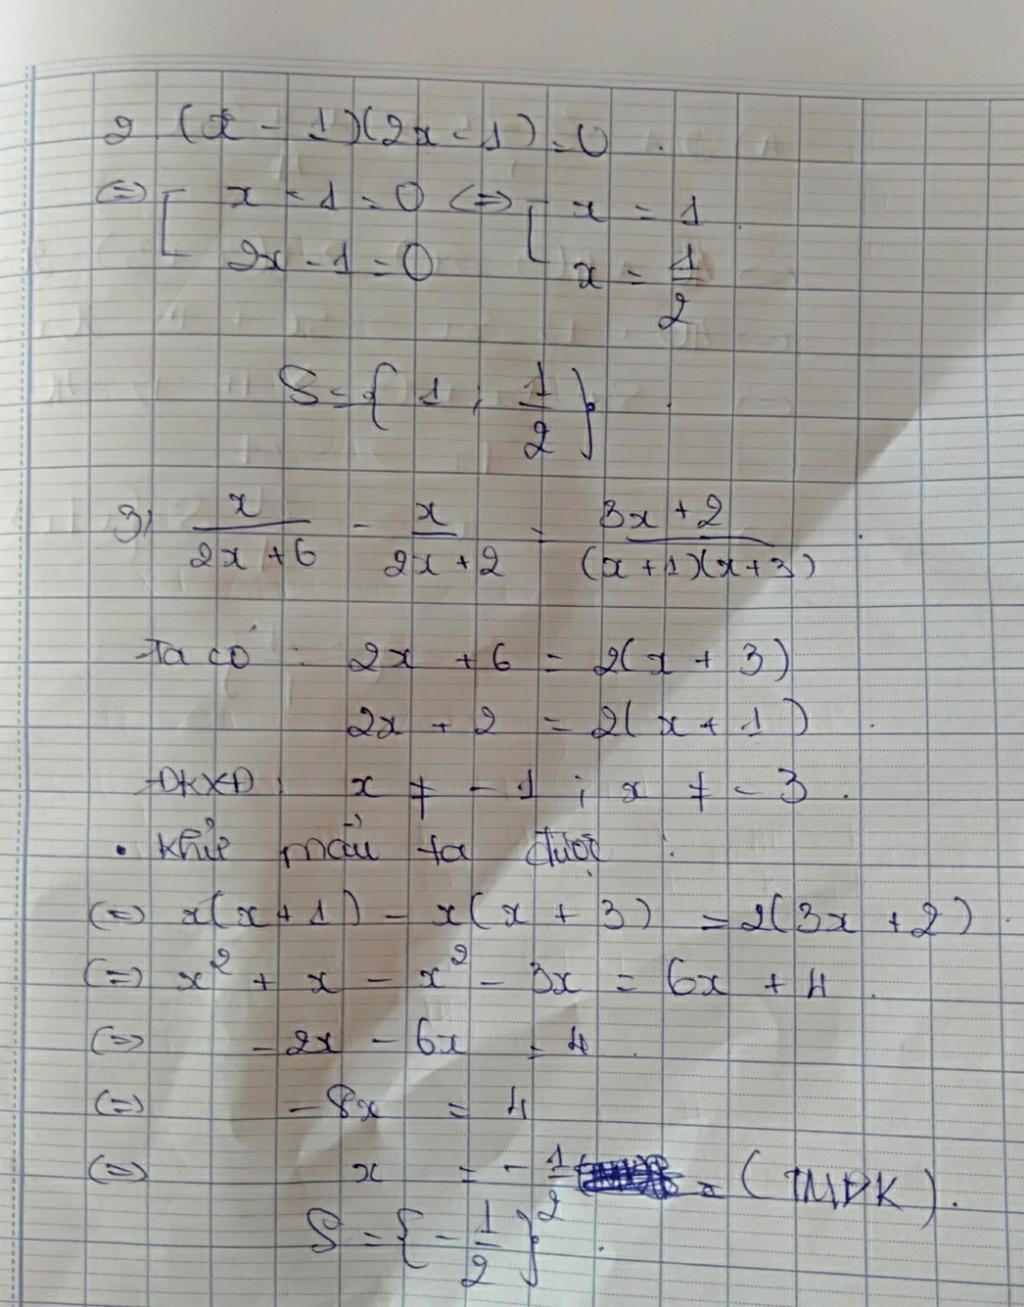 2 (x - 1)(2x - 1) = 0
(=) [ x - 1 = 0 (=) [ x = 1
2x - 1 = 0 x = 1/2
S = { 1 ; 1/2 }
3) x/(2x + 6) - x/(2x + 2) = (3x + 2)/((x + 1)(x + 3))
Ta có : 2x + 6 = 2(x + 3)
2x + 2 = 2(x + 1)
ĐKXĐ : x ≠ - 1 ; x ≠ - 3 .
• Khử mẫu ta được :
(=) x(x + 1) - x(x + 3) = 2(3x + 2)
(=) x² + x - x² - 3x = 6x + 4
(=) - 2x - 6x = 4
(=) - 8x = 4
(=) x = - 1/2 (TMĐK).
S = { - 1/2 }